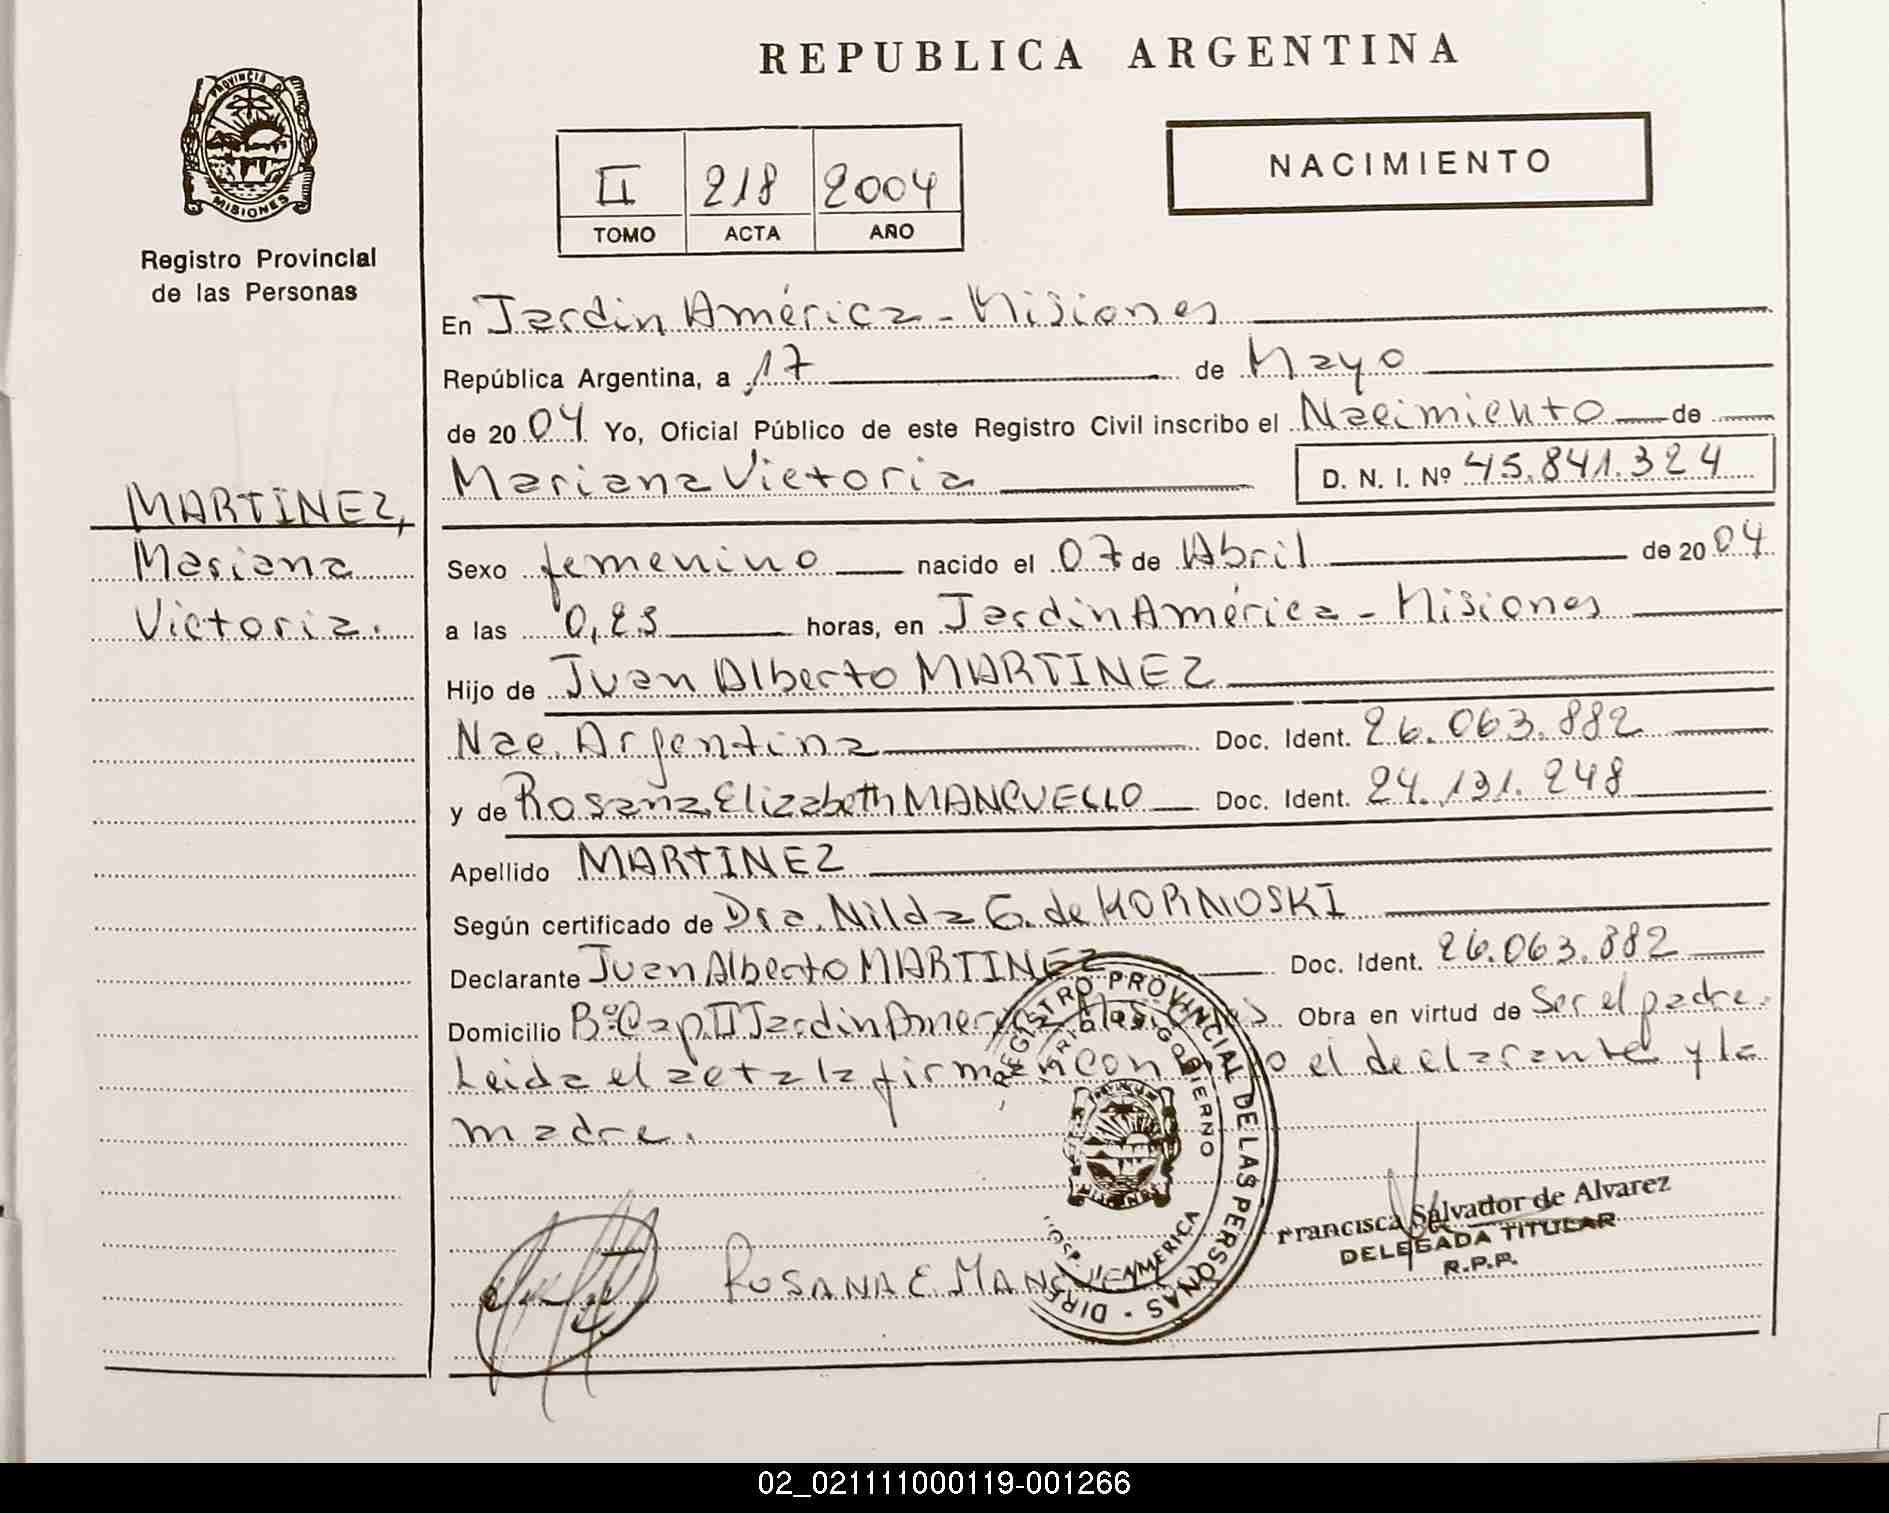 PROVINCIA DE
MISIONES
Registro Provincial
de las Personas
MARTINEZ,
Mariana
Victoria.
REPUBLICA ARGENTINA
NACIMIENTO
II 218 2004
TOMO ACTA AÑO
En Jardin América - Misiones
República Argentina, a 17 de Mayo
de 2004 Yo, Oficial Público de este Registro Civil inscribo el Nacimiento de
Mariana Victoria D. N. I. Nº 45.841.324
Sexo femenino nacido el 07 de Abril de 2004
a las 0,23 horas, en Jardin América - Misiones
Hijo de Juan Alberto MARTINEZ
Nac. Argentina Doc. Ident. 26.063.882
y de Rosana Elizabeth MANCUELLO Doc. Ident. 24.131.248
Apellido MARTINEZ
Según certificado de Dra. Nilda G. de KORNOSKI
Declarante Juan Alberto MARTINEZ Doc. Ident. 26.063.882
Domicilio Bº Cap. II Jardin America Misiones Obra en virtud de Ser el padre.
Leida el acta la firman conmigo el declarante y la
madre.
REGISTRO PROVINCIAL DE LAS PERSONAS
GOBIERNO
MISIONES
AMERICA
ROSANA E. MANCUELLO
Francisca Salvador de Alvarez
DELEGADA TITULAR
R.P.P.
02_021111000119-001266